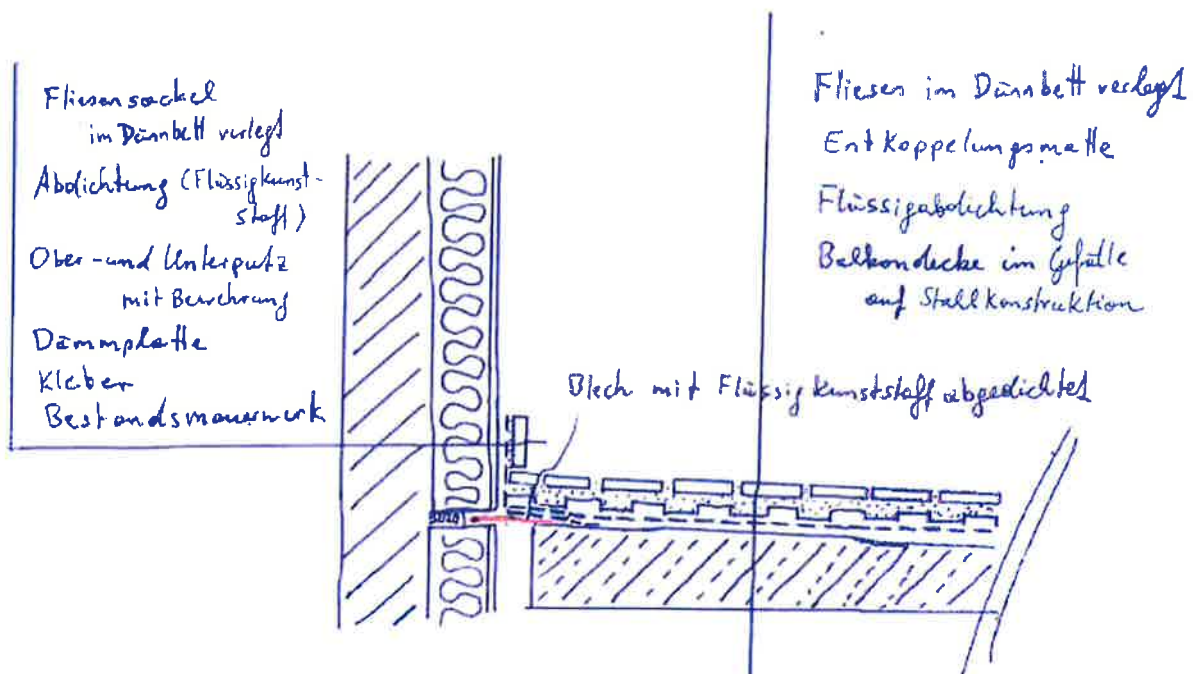 Fliesensockel
im Dünnbett verlegt
Abdichtung (Flüssigkunst-
stoff)
Ober- und Unterputz
mit Bewehrung
Dämmplatte
Kleber
Bestandsmauerwerk
Fliesen im Dünnbett verlegt
Entkoppelungsmatte
Flüssigabdichtung
Balkondecke im Gefälle
auf Stahlkonstruktion
Blech mit Flüssigkunststoff abgedichtet